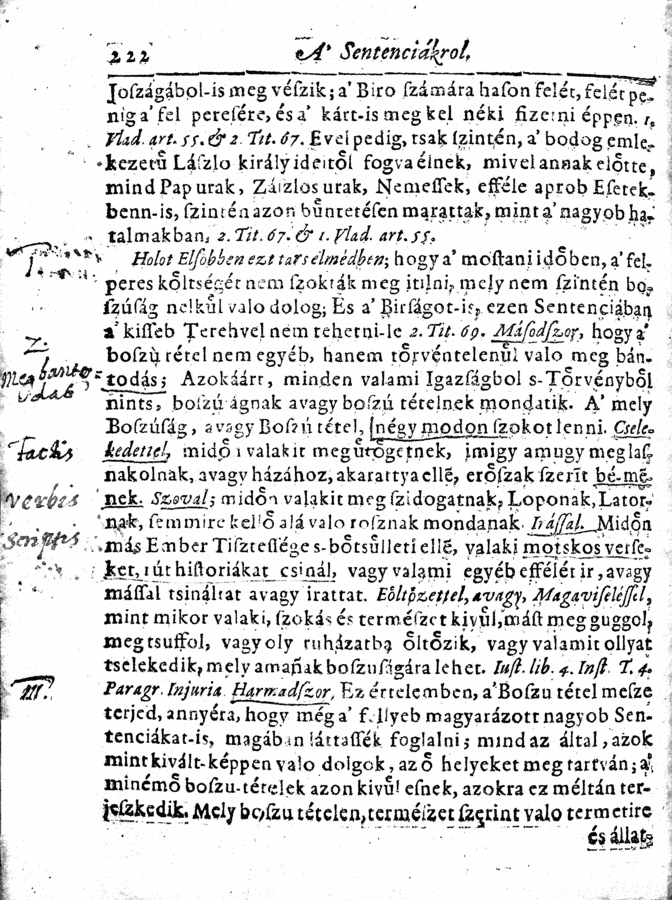 222 A' Sentenciákrol.
Joſzágábol-is meg véſzik; a' Biro ſzámára haſon felét, felét pe-
nig a' fel pereſére, és a' kárt-is meg kel néki fizetni éppen. 1.
Vlad. art. 55. & 2. Tit. 67. Evel pedig, tsak ſzintén, a' bodog emle-
kezetű Láſzlo király ideitől fogva élnek, mivel annak előtte,
mind Pap urak, Záſzlos urak, Nemeſſek, efféle aprob Eſetek-
benn-is, ſzintén azon bűntetéſen marattak, mint a' nagyob ha-
talmakban, 2. Tit. 67. & 1. Vlad. art. 55.
Holot Elſöbben ezt tars elmédben; hogy a' moſtani időben, a' fel-
peres költségét nem ſzokták meg itilni, mely nem ſzintén bo-
ſzúſág nelkűl valo dolog; És a' Birſágot-is, ezen Sentenciában
a' kiſſeb Terehvel nem tehetni-le 2. Tit. 69. Máſodſzor, hogy a'
2.
boſzu tétel nem egyéb, hanem tőrvéntelenűl valo meg bán-
Megbanto-
todás; Azokáárt, minden valami Igazſágbol s-Tőrvényből
nints, boſzuſágnak avagy boſzú tételnek mondatik. A' mely
Boſzúſág, avagy Boſzú tétel, négy modon ſzokot lenni. Csele-
kedettel, midőn valakit megűtőgetnek, imigy amugy meglaſ-
nakolnak, avagy házához, akarattya ellē, erőſzak ſzerīt bé-mē-
verbis
nek. Szoval; midőn valakit meg ſzidogatnak, Loponak, Lator-
nak, ſemmire kellő alá valo roſznak mondanak. Iráſſal. Midőn
scriptis
más Ember Tiſzteſſége s-bőtsűlleti ellē, valaki motskos verſe-
ket, rút hiſtoriákat csinál, vagy valami egyéb effélét ir, avagy
máſſal tsináltat avagy irattat. Eőltözettel, avagy, Magaviſeléſſel,
mint mikor valaki, ſzokás és terméſzet kivűl, máſt meg guggol,
meg tsuffol, vagy oly ruházatba őltőzik, vagy valamit ollyat
tselekedik, mely amañak boſzuſágára lehet. Iuſt. lib. 4. Inſt. T. 4.
Paragr. Injuria. Harmadſzor, Ez értelemben, a' Boſzu tétel meſze
terjed, annyéra, hogy még a' fellyeb magyarázott nagyob Sen-
tenciákat-is, magában láttaſſék foglalni; mind az által, azok
mint kivált-képpen valo dolgok, az ő helyeket meg tartván; a'
minémő boſzu-tételek azon kivűl eſnek, azokra ez méltán ter-
jeſzkedik. Mely boſzu tételen, termeſzet ſzerint valo termetire
és állat-